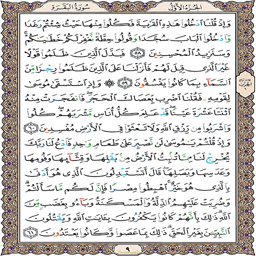 سورة البقرة الجزء الأول
وَإِذْ قُلْنَا ادْخُلُوا هَٰذِهِ الْقَرْيَةَ فَكُلُوا مِنْهَا حَيْثُ شِئْتُمْ رَغَدًا
وَادْخُلُوا الْبَابَ سُجَّدًا وَقُولُوا حِطَّةٌ نَغْفِرْ لَكُمْ خَطَايَاكُمْ
وَسَنَزِيدُ الْمُحْسِنِينَ ٥٨ فَبَدَّلَ الَّذِينَ ظَلَمُوا قَوْلًا
غَيْرَ الَّذِي قِيلَ لَهُمْ فَأَنْزَلْنَا عَلَى الَّذِينَ ظَلَمُوا رِجْزًا مِنَ
السَّمَاءِ بِمَا كَانُوا يَفْسُقُونَ ٥٩ وَإِذِ اسْتَسْقَىٰ مُوسَىٰ
لِقَوْمِهِ فَقُلْنَا اضْرِبْ بِعَصَاكَ الْحَجَرَ فَانْفَجَرَتْ مِنْهُ
اثْنَتَا عَشْرَةَ عَيْنًا قَدْ عَلِمَ كُلُّ أُنَاسٍ مَشْرَبَهُمْ كُلُوا
وَاشْرَبُوا مِنْ رِزْقِ اللَّهِ وَلَا تَعْثَوْا فِي الْأَرْضِ مُفْسِدِينَ ٦٠
وَإِذْ قُلْتُمْ يَا مُوسَىٰ لَنْ نَصْبِرَ عَلَىٰ طَعَامٍ وَاحِدٍ فَادْعُ لَنَا رَبَّكَ
يُخْرِجْ لَنَا مِمَّا تُنْبِتُ الْأَرْضُ مِنْ بَقْلِهَا وَقِثَّائِهَا وَفُومِهَا
وَعَدَسِهَا وَبَصَلِهَا قَالَ أَتَسْتَبْدِلُونَ الَّذِي هُوَ أَدْنَىٰ
بِالَّذِي هُوَ خَيْرٌ اهْبِطُوا مِصْرًا فَإِنَّ لَكُمْ مَا سَأَلْتُمْ
وَضُرِبَتْ عَلَيْهِمُ الذِّلَّةُ وَالْمَسْكَنَةُ وَبَاءُوا بِغَضَبٍ مِنَ
اللَّهِ ذَٰلِكَ بِأَنَّهُمْ كَانُوا يَكْفُرُونَ بِآيَاتِ اللَّهِ وَيَقْتُلُونَ
النَّبِيِّينَ بِغَيْرِ الْحَقِّ ذَٰلِكَ بِمَا عَصَوْا وَكَانُوا يَعْتَدُونَ ٦١
٩